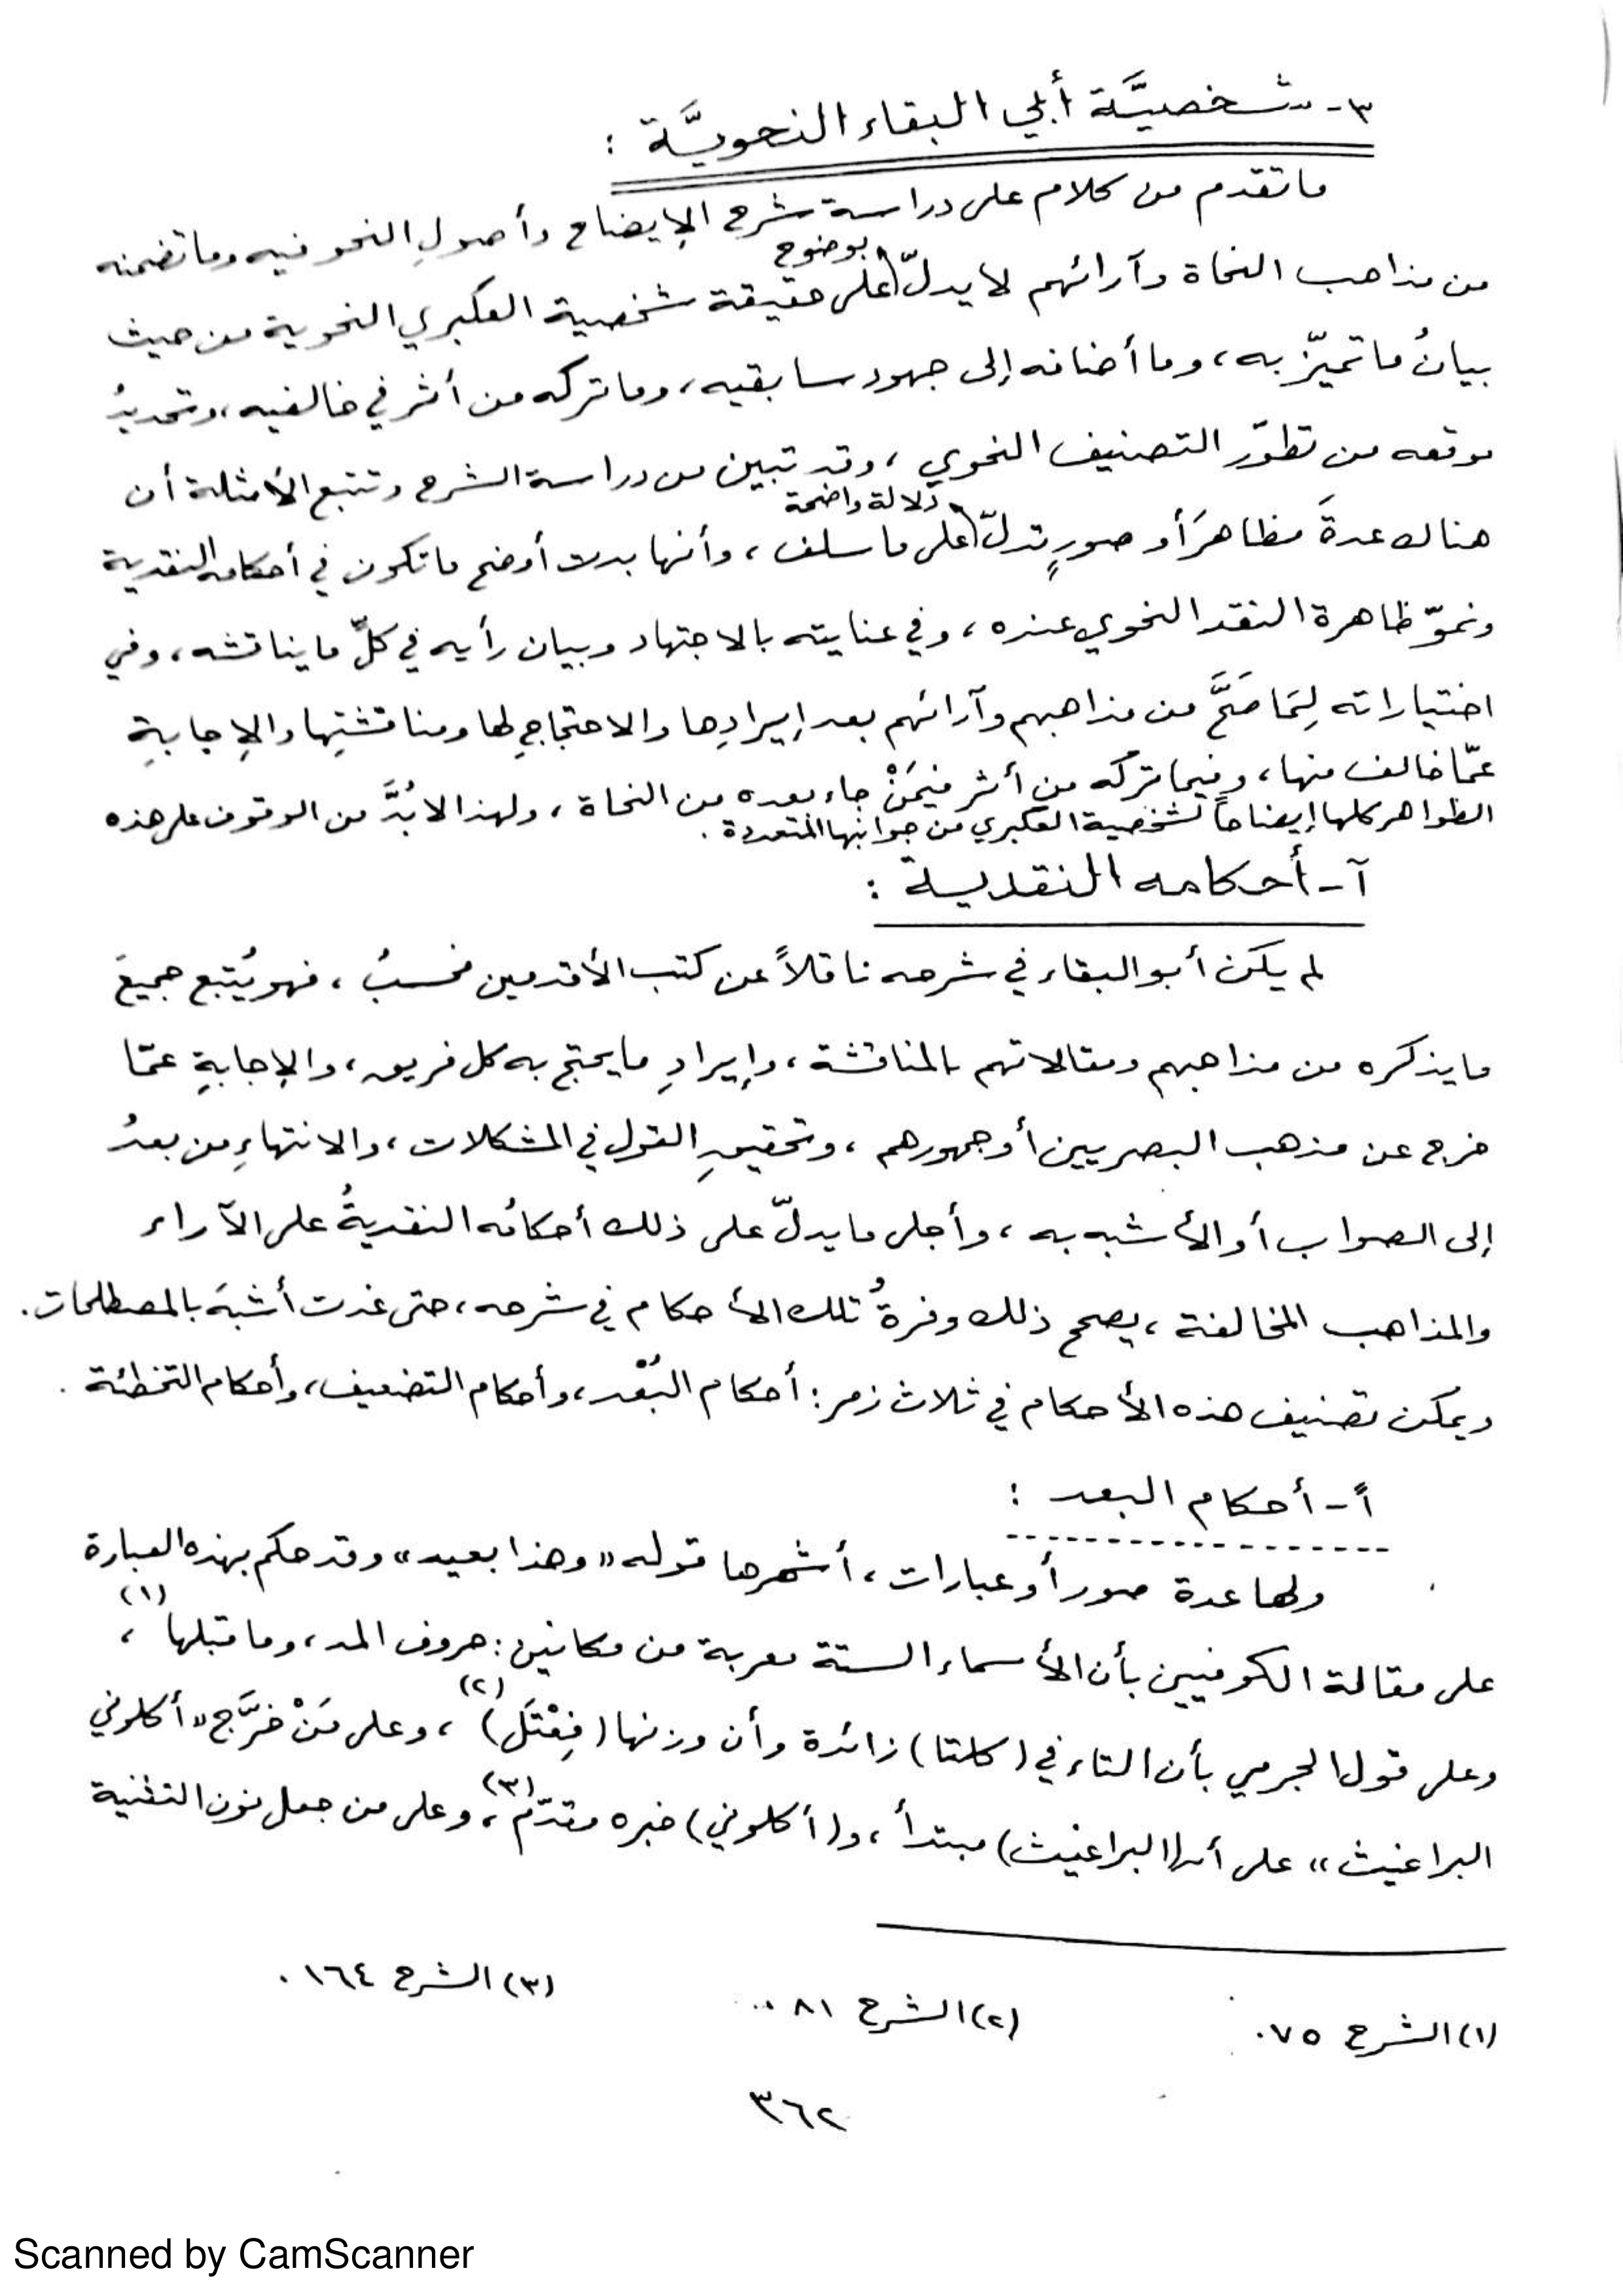 ٣- شخصيَّة أبي البقاء النحويَّة :
ما تقدم من كلام على دراسة شرح الإيضاح وأصولِ النحو فيه وما تضمنه
من مذاهب النحاة وآرائهم لا يدلّ بوضوح على حقيقة شخصية العكبري النحوية من حيث
بيانُ ما تميّز به، وما أضافه إلى جهود سابقيه، وما تركه من أثر في خالفيه، وتحديدُ
موقعه من تطوّر التصنيف النحوي، وقد تبين من دراسة الشرح وتتبع الأمثلة أن
هناك عدةَ مظاهرَ أو صورٍ تدلّ دلالة واضحة على ما سلف، وأنها بدت أوضح ما تكون في أحكامه النقدية
ونموّ ظاهرة النقد النحوي عنده، وفي عنايته بالاجتهاد وبيان رأيه في كلّ ما يناقشه، وفي
اختياراته لِمَا صَحَّ من مذاهبهم وآرائهم بعد إيرادِها والاحتجاجِ لها ومناقشتِها والإجابةِ
عمّا خالف منها، وفيما تركه من أثر فيمَنْ جاء بعده من النحاة، ولهذا لا بُدَّ من الوقوف على هذه
الظواهر كلها إيضاحاً لشخصية العكبري من جوانبها المتعددة.
آ- أحكامه النقدية :
لم يكن أبو البقاء في شرحه ناقلاً عن كتب الأقدمين فحسبُ، فهو يُتبع جميعَ
ما يذكره من مذاهبهم ومقالاتهم بالمناقشة، وإيرادِ ما يحتج به كل فريق، والإجابةِ عمّا
خرج عن مذهب البصريين أو جمهورهم، وتحقيقِ القول في المشكلات، والانتهاءِ من بعدُ
إلى الصواب أو الأشبه به، وأجلى ما يدلّ على ذلك أحكامُه النقديةُ على الآراء
والمذاهب المخالفة، يصحح ذلك وفرةُ تلك الأحكام في شرحه، حتى غدت أشبهَ بالمصطلحات.
ويمكن تصنيف هذه الأحكام في ثلاث زمر: أحكام البُعْد، وأحكام التضعيف، وأحكام التخطئة.
أً- أحكام البعد :
ولها عدة صور أو عبارات، أشهرها قوله «وهذا بعيد» وقد حكم بهذه العبارة
على مقالة الكوفيين بأن الأسماء الستة معربة من مكانين: حروف المد، وما قبلها (١)،
وعلى قول الجرمي بأن التاء في (كلتا) زائدة وأن وزنها (فِعْتَل) (٢)، وعلى مَنْ خرَّج «أكلوني
البراغيث» على أن (البراغيث) مبتدأ، و(أكلوني) خبره مقدّم (٣)، وعلى من جعل نون التثنية
(١) الشرح ٧٥. (٢) الشرح ٨١. (٣) الشرح ١٦٤.
٣٦٢
Scanned by CamScanner